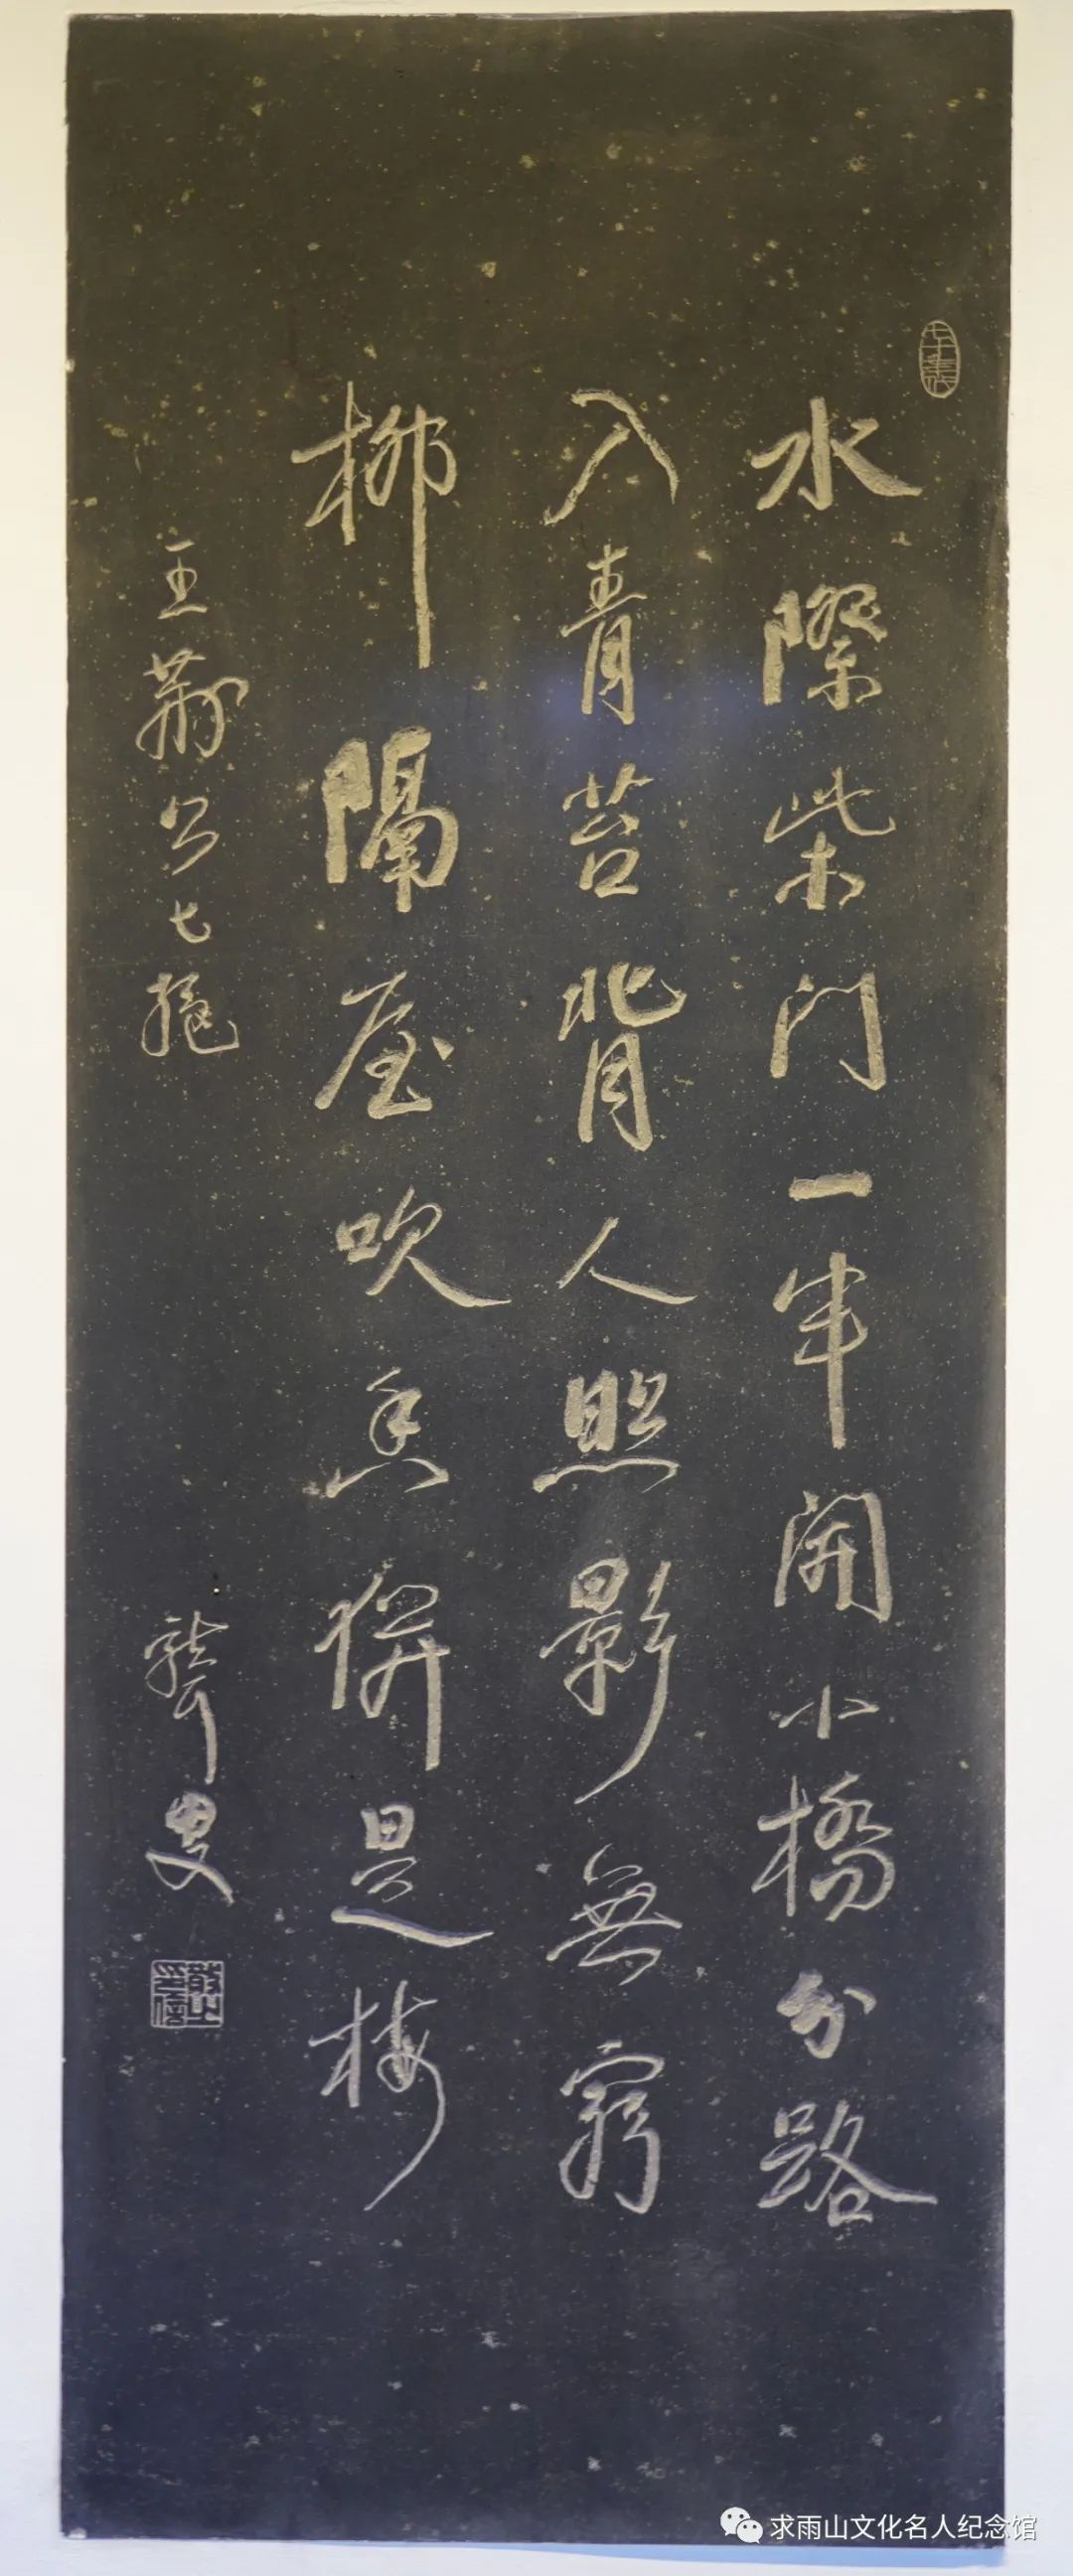 水際柴門一半開小橋分路
入青苔背人照影無窮
柳隔屋吹香併是梅
王荊公七絕
聾叟
求雨山文化名人纪念馆